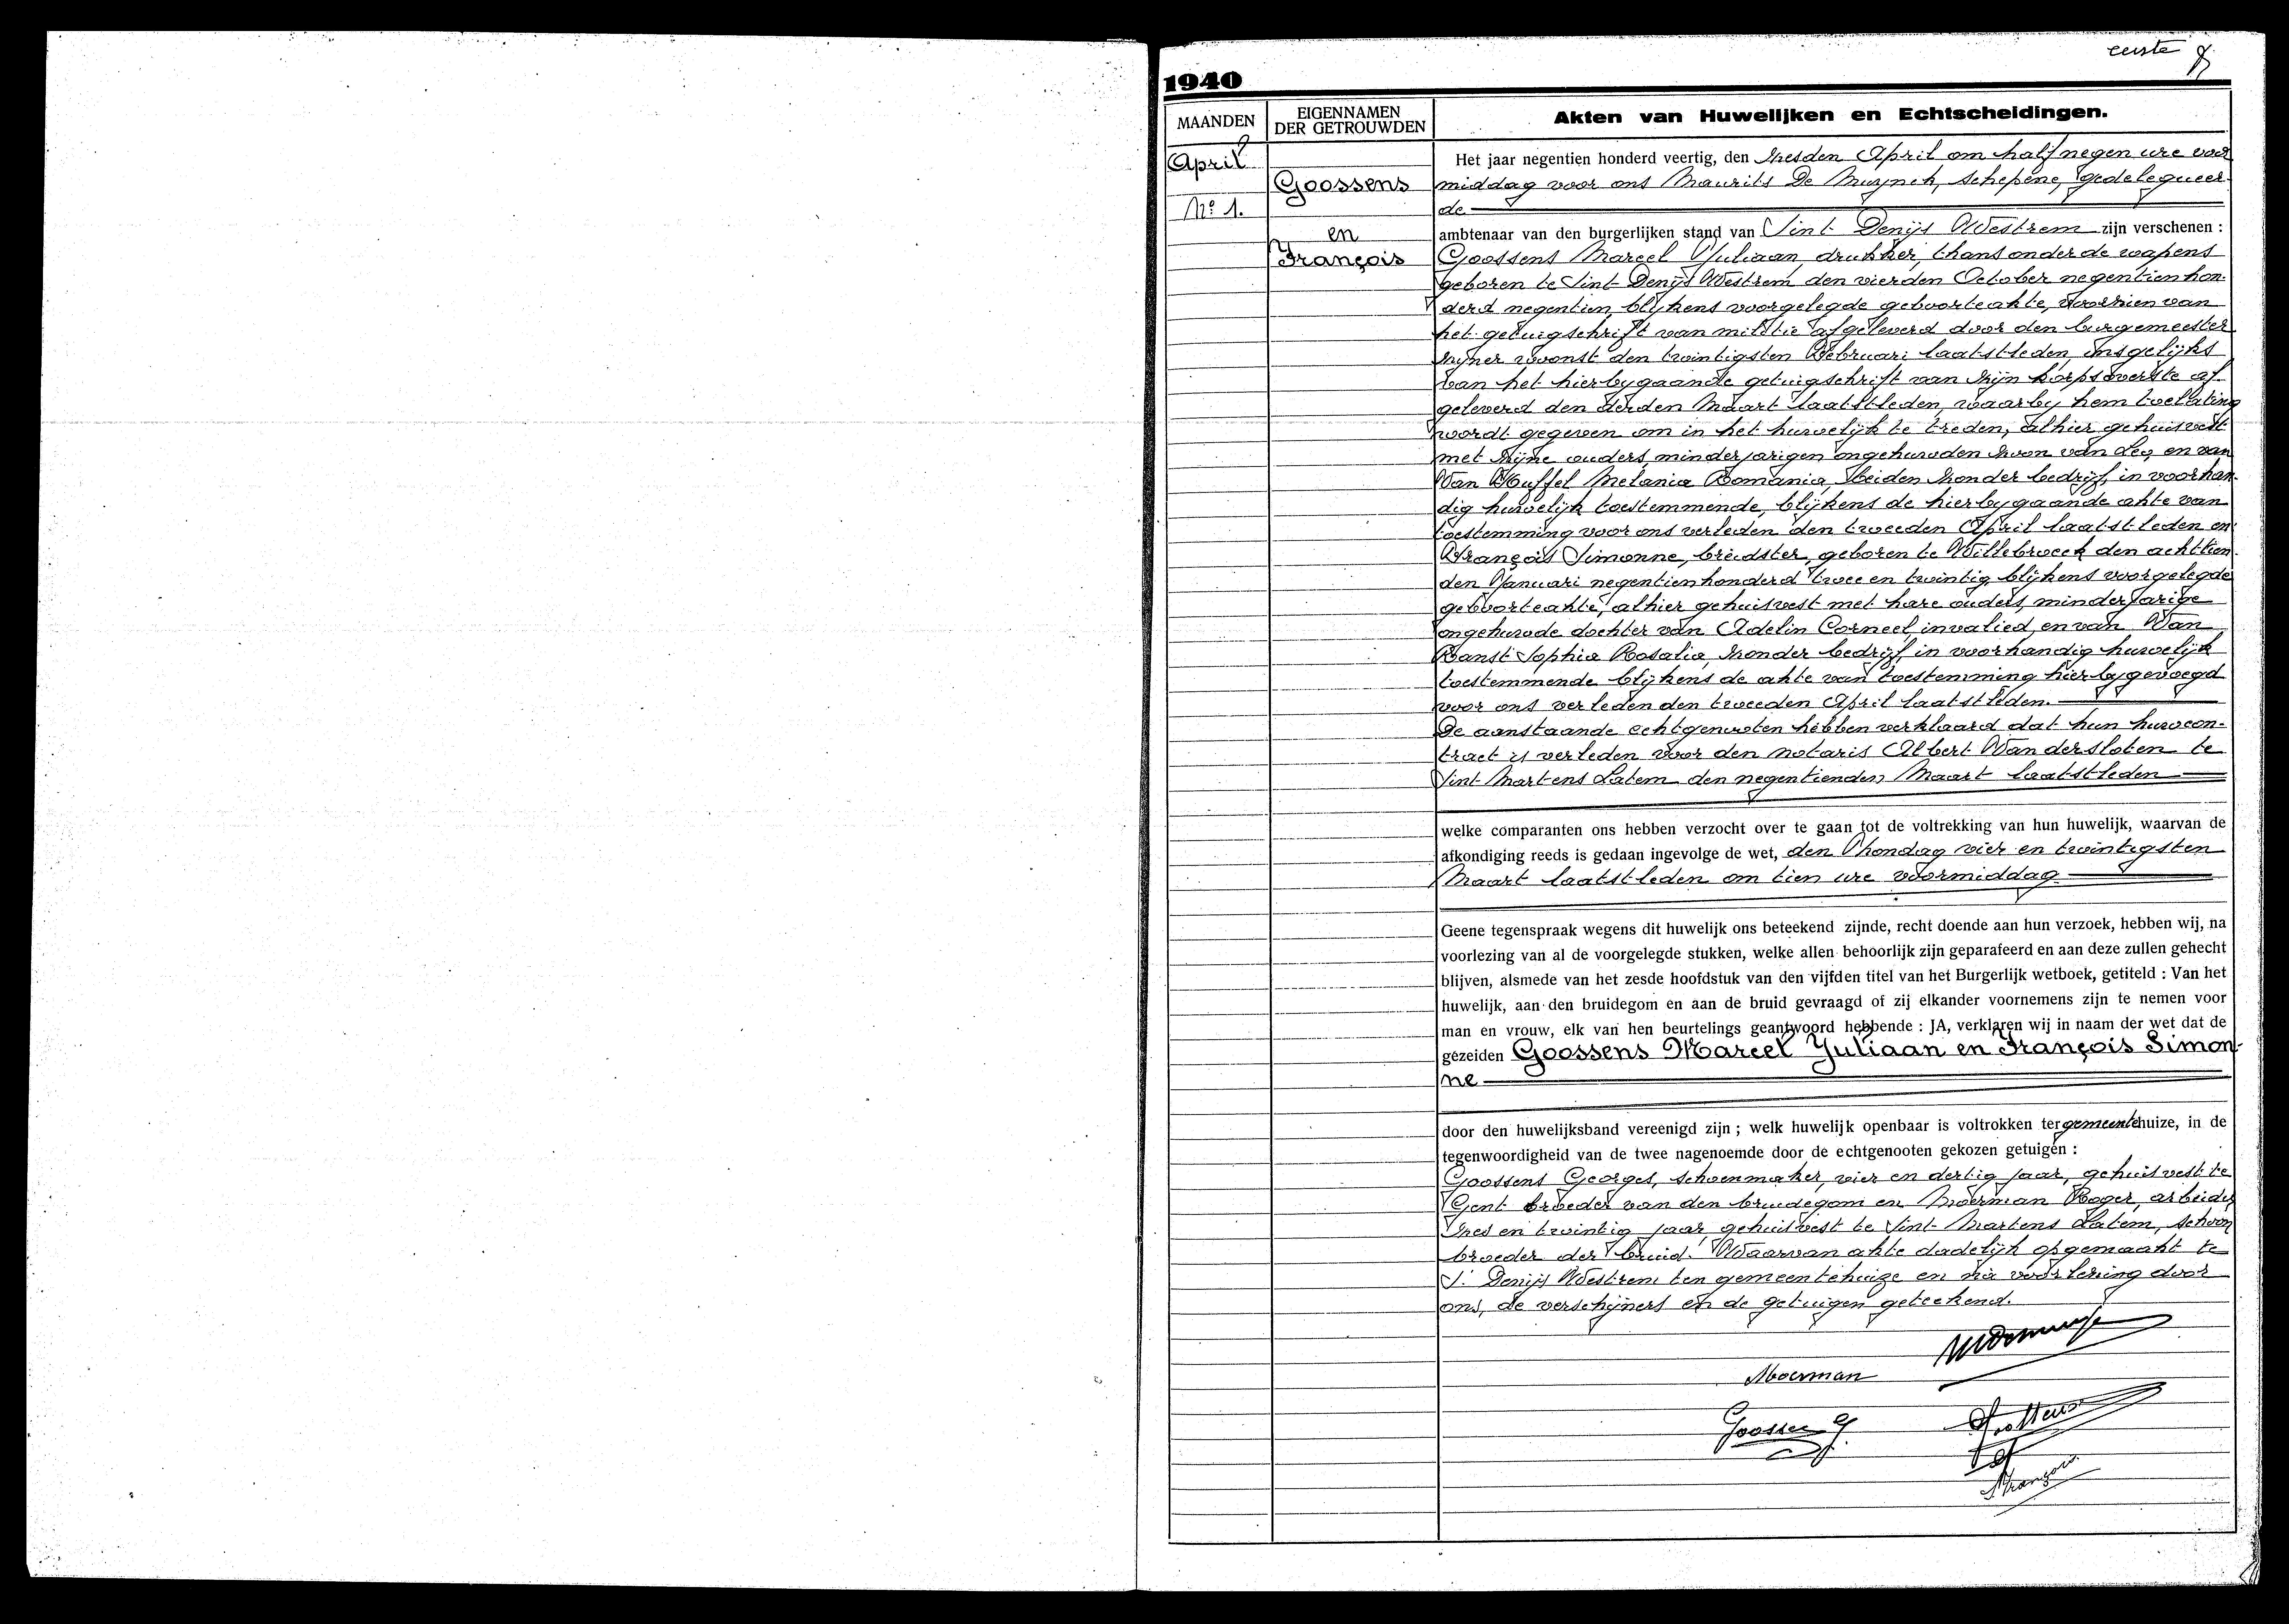 eerste
1940
MAANDEN
EIGENNAMEN
DER GETROUWDEN
Akten van Huwelijken en Echtscheidingen.
April
Nº 1.
Goossens
en
François
Het jaar negentien honderd veertig, den zesden April om half negen ure voor
middag voor ons Maurits De Muynck, schepene, gedelegueer-
de
ambtenaar van den burgerlijken stand van Sint Denijs Westrem zijn verschenen :
Goossens Marcel Juliaan, drukker, thans onder de wapens
geboren te Sint Denijs Westrem den vierden October negentien hon-
derd negentien, blijkens voorgelegde geboorteakte, voorzien van
het getuigschrift van militie afgeleverd door den burgemeester
zijner woonst den twintigsten Februari laatstleden, insgelijks
van het hierbygaande getuigschrift van zijn korpsoverste af-
geleverd den derden Maart laatstleden, waarby hem toelating
wordt gegeven om in het huwelijk te treden, alhier gehuisvest
met zijne ouders, minderjarigen ongehuwden zoon van Leo, en van
Van Huffel Melania Romania, beiden zonder bedrijf, in voorhan-
dig huwelijk toestemmende, blijkens de hierbygaande akte van
toestemming voor ons verleden den tweeden April laatstleden en
François Simonne, breidster, geboren te Willebroeck den achttien-
den Januari negentienhonderd twee en twintig, blijkens voorgelegde
geboorteakte, alhier gehuisvest met hare ouders, minderjarige
ongehuwde dochter van Adelin Corneel, invalied, en van Van
Ranst Sophia Rosalia, zonder bedrijf, in voorhandig huwelijk
toestemmende blijkens de akte van toestemming hierbygevoegd
voor ons verleden den tweeden April laatstleden.
De aanstaande echtgenooten hebben verklaard dat hun huwcon-
tract is verleden voor den notaris Albert Vandersloten te
Sint Martens Latem den negentienden Maart laatstleden
welke comparanten ons hebben verzocht over te gaan tot de voltrekking van hun huwelijk, waarvan de
afkondiging reeds is gedaan ingevolge de wet, den Zhondag vier en twintigsten
Maart laatstleden om tien ure voormiddag
Geene tegenspraak wegens dit huwelijk ons beteekend zijnde, recht doende aan hun verzoek, hebben wij, na
voorlezing van al de voorgelegde stukken, welke allen behoorlijk zijn geparafeerd en aan deze zullen gehecht
blijven, alsmede van het zesde hoofdstuk van den vijfden titel van het Burgerlijk wetboek, getiteld : Van het
huwelijk, aan den bruidegom en aan de bruid gevraagd of zij elkander voornemens zijn te nemen voor
man en vrouw, elk van hen beurtelings geantwoord hebbende : JA, verklaren wij in naam der wet dat de
gezeiden Goossens Marcel Juliaan en François Simon-
ne
door den huwelijksband vereenigd zijn ; welk huwelijk openbaar is voltrokken ter gemeentehuize, in de
tegenwoordigheid van de twee nagenoemde door de echtgenooten gekozen getuigen :
Goossens Georges, schoenmaker, vier en dertig jaar, gehuisvest te
Gent broeder van den bruidegom en Moerman Roger, arbeider
zes en twintig jaar, gehuisvest te Sint Martens Latem, schoon
broeder der bruid. Waarvan akte dadelijk opgemaakt te
St Denijs Westrem ten gemeentehuize en na voorlezing door
ons, de verschijners en de getuigen geteekend.
Moerman
Goossen G
François